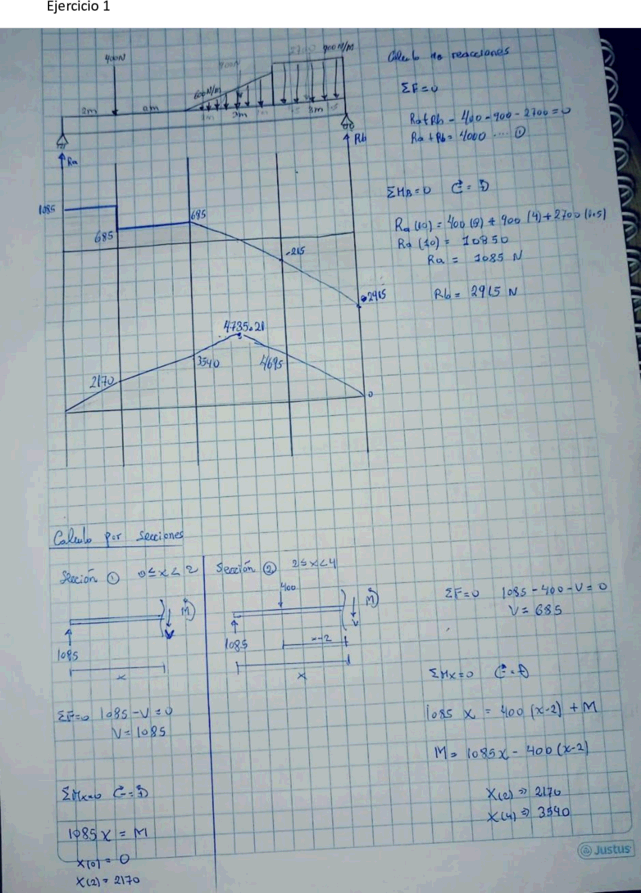 Ejercicio 1
400N
900N
2700
900N/m
600N/m
2m
2m
3m
3m
Ra
Rb
1085
685
685
-215
-2915
4735.21
2170
3540
4695
0
Calculo de reacciones
ΣF=0
Ra+Rb - 400 - 900 - 2700 = 0
Ra + Rb = 4000 ---- ①
ΣMB=0
Ra (10) = 400 (8) + 900 (4) + 2700 (1.5)
Ra (10) = 10850
Ra = 1085 N
Rb = 2915 N
Calculo por Secciones
Sección ① 0≤x<2
M
V
1085
x
ΣF=0 1085 - V = 0
V = 1085
ΣMx=0
1085 x = M
X(0) = 0
X(2) = 2170
Sección ② 2≤x<4
400
M
V
1085
x-2
x
ΣF=0 1085 - 400 - V = 0
V = 685
ΣMx=0
1085 x = 400 (x-2) + M
M = 1085x - 400(x-2)
X(2) ⇒ 2170
X(4) ⇒ 3540
Justus